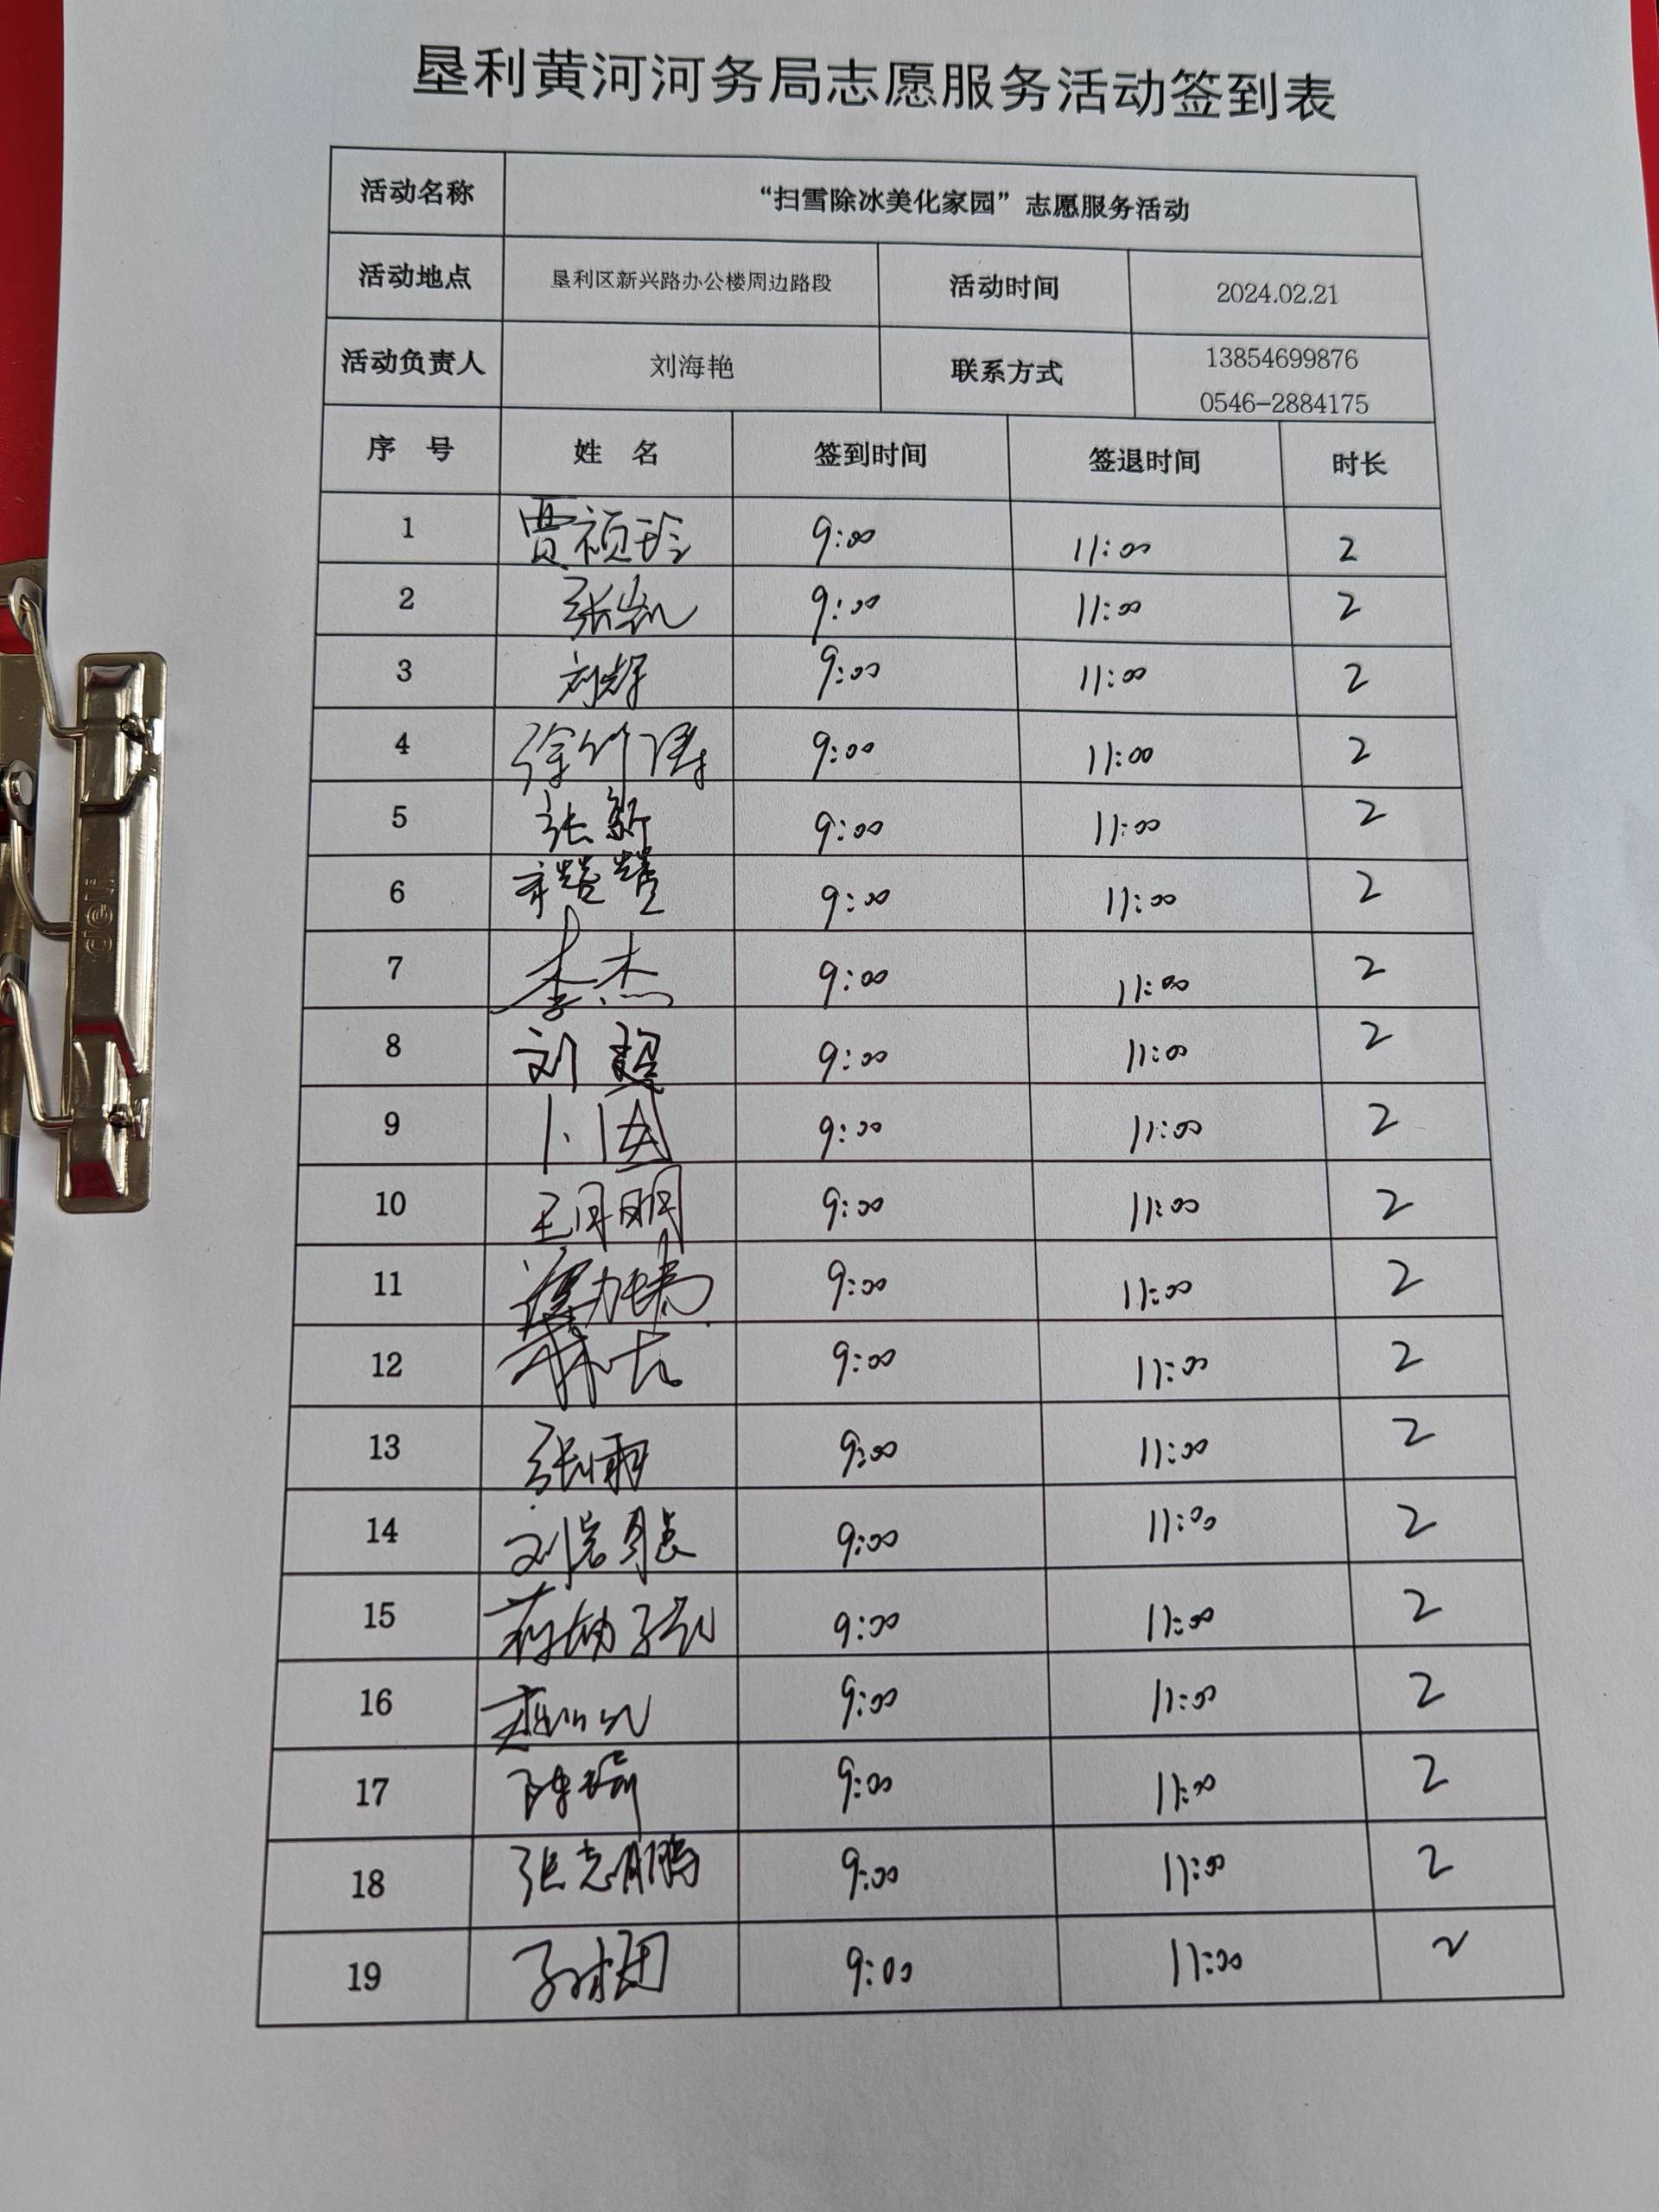 垦利黄河河务局志愿服务活动签到表
活动名称 “扫雪除冰美化家园”志愿服务活动
活动地点 垦利区新兴路办公楼周边路段 活动时间 2024.02.21
活动负责人 刘海艳 联系方式 13854699876
0546-2884175
序 号 姓 名 签到时间 签退时间 时长
1 贾祯玲 9:00 11:00 2
2 张凯 9:00 11:00 2
3 刘辉 9:00 11:00 2
4 徐竹涛 9:00 11:00 2
5 张新 9:00 11:00 2
6 9:00 11:00 2
7 李杰 9:00 11:00 2
8 刘超 9:00 11:00 2
9 9:00 11:00 2
10 王月明 9:00 11:00 2
11 9:00 11:00 2
12 9:00 11:00 2
13 张雨 9:00 11:00 2
14 9:00 11:00 2
15 9:00 11:00 2
16 9:00 11:00 2
17 陈瑜 9:00 11:00 2
18 张志鹏 9:00 11:00 2
19 9:00 11:00 2
deli